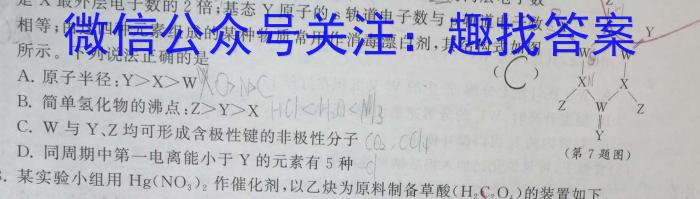 是X最外层电子数的2倍;基态Y原子的s轨道电子数与p轨道电子数
相等;
微信公众号关注：趣找答案
所示。下列说法正确的是 ( C )
A. 原子半径:Y>X>W
B. 简单氢化物的沸点:Z>Y>X
C. W与Y、Z均可形成含极性键的非极性分子 CO₂, CCl₄
D. 同周期中第一电离能小于Y的元素有5种
Y
Z
W
W
X
X
Z
W
Z
Y
(第7题图)
. 某实验小组用Hg(NO₃)₂作催化剂,以乙炔为原料制备草酸(H₂C₂O₄)的装置如下